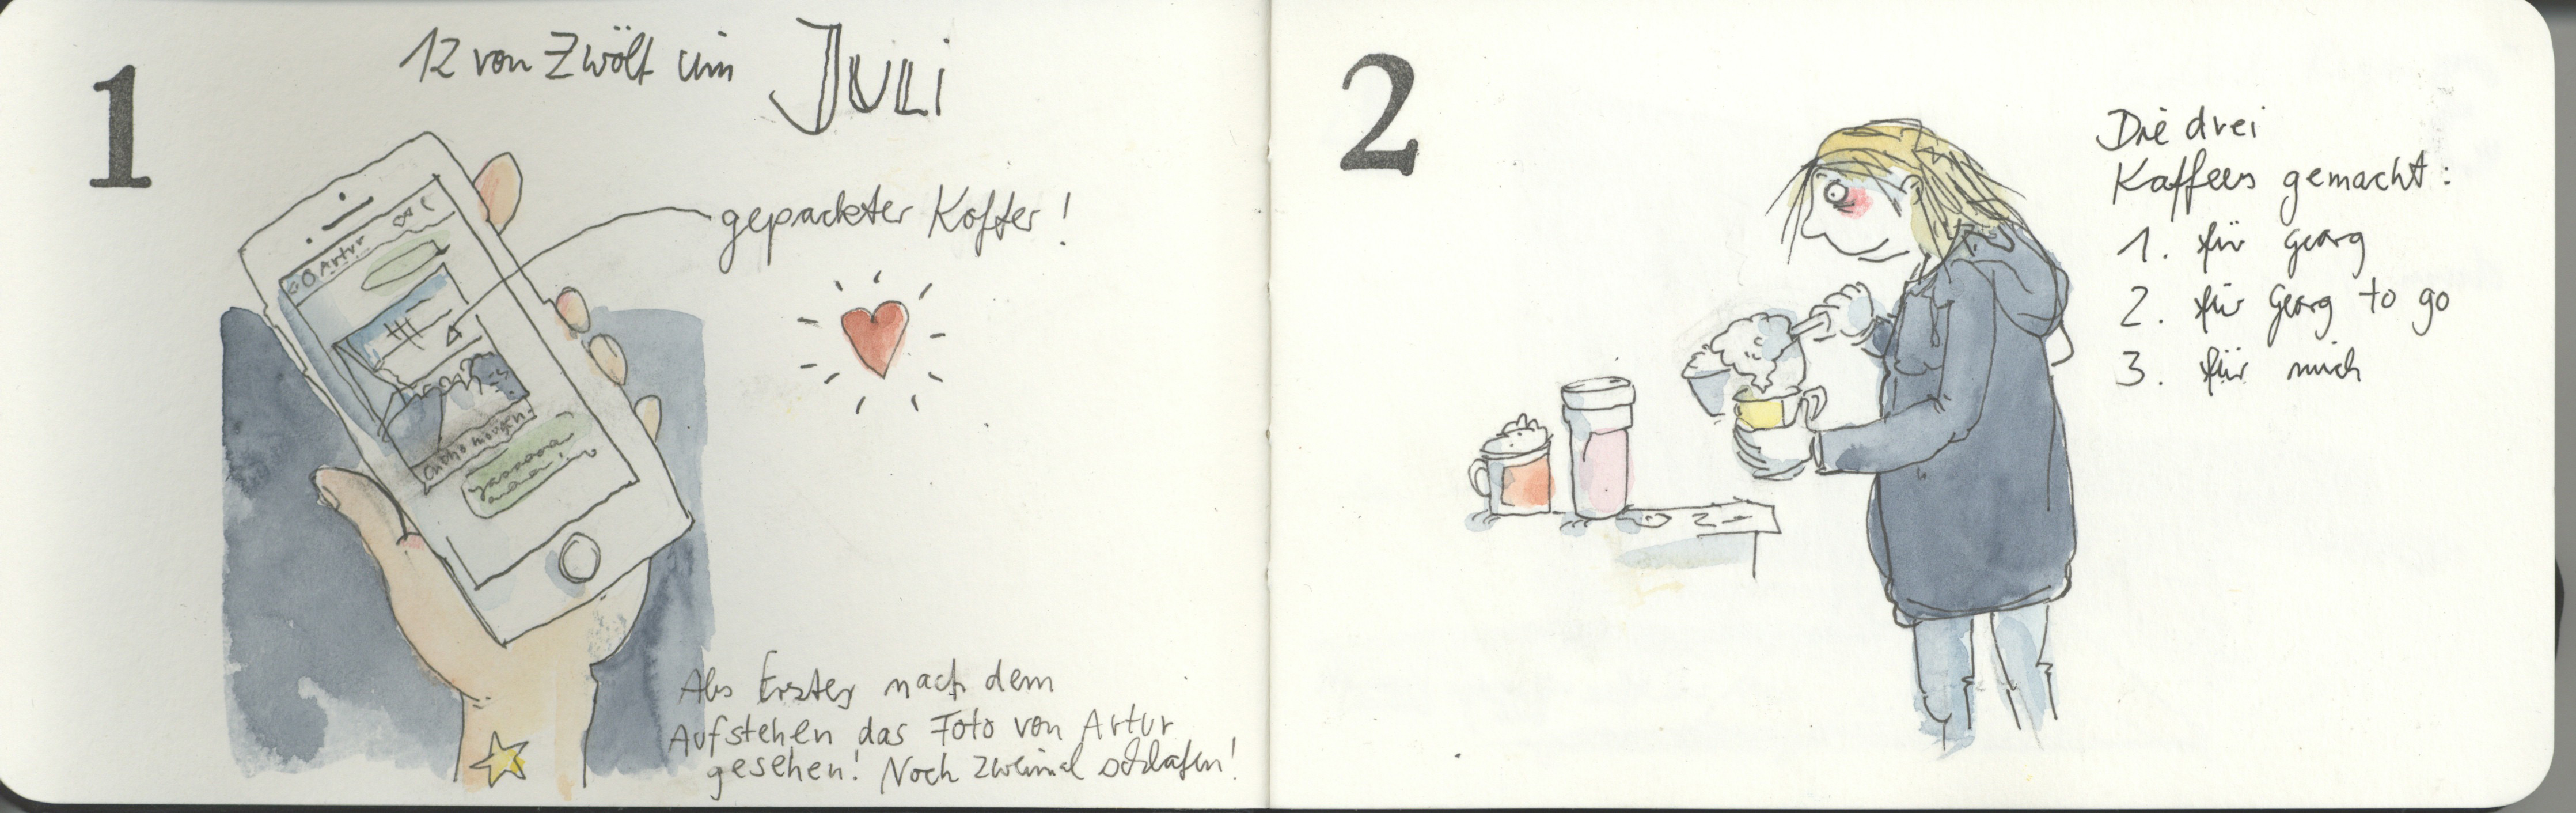 1
12 von Zwölf im JULI
gepackter Koffer!
Artur
yaaaaaa
Als Erstes nach dem
Aufstehen das Foto von Artur
gesehen! Noch zweimal schlafen!
2
Die drei
Kaffees gemacht:
1. für Georg
2. für Georg to go
3. für mich